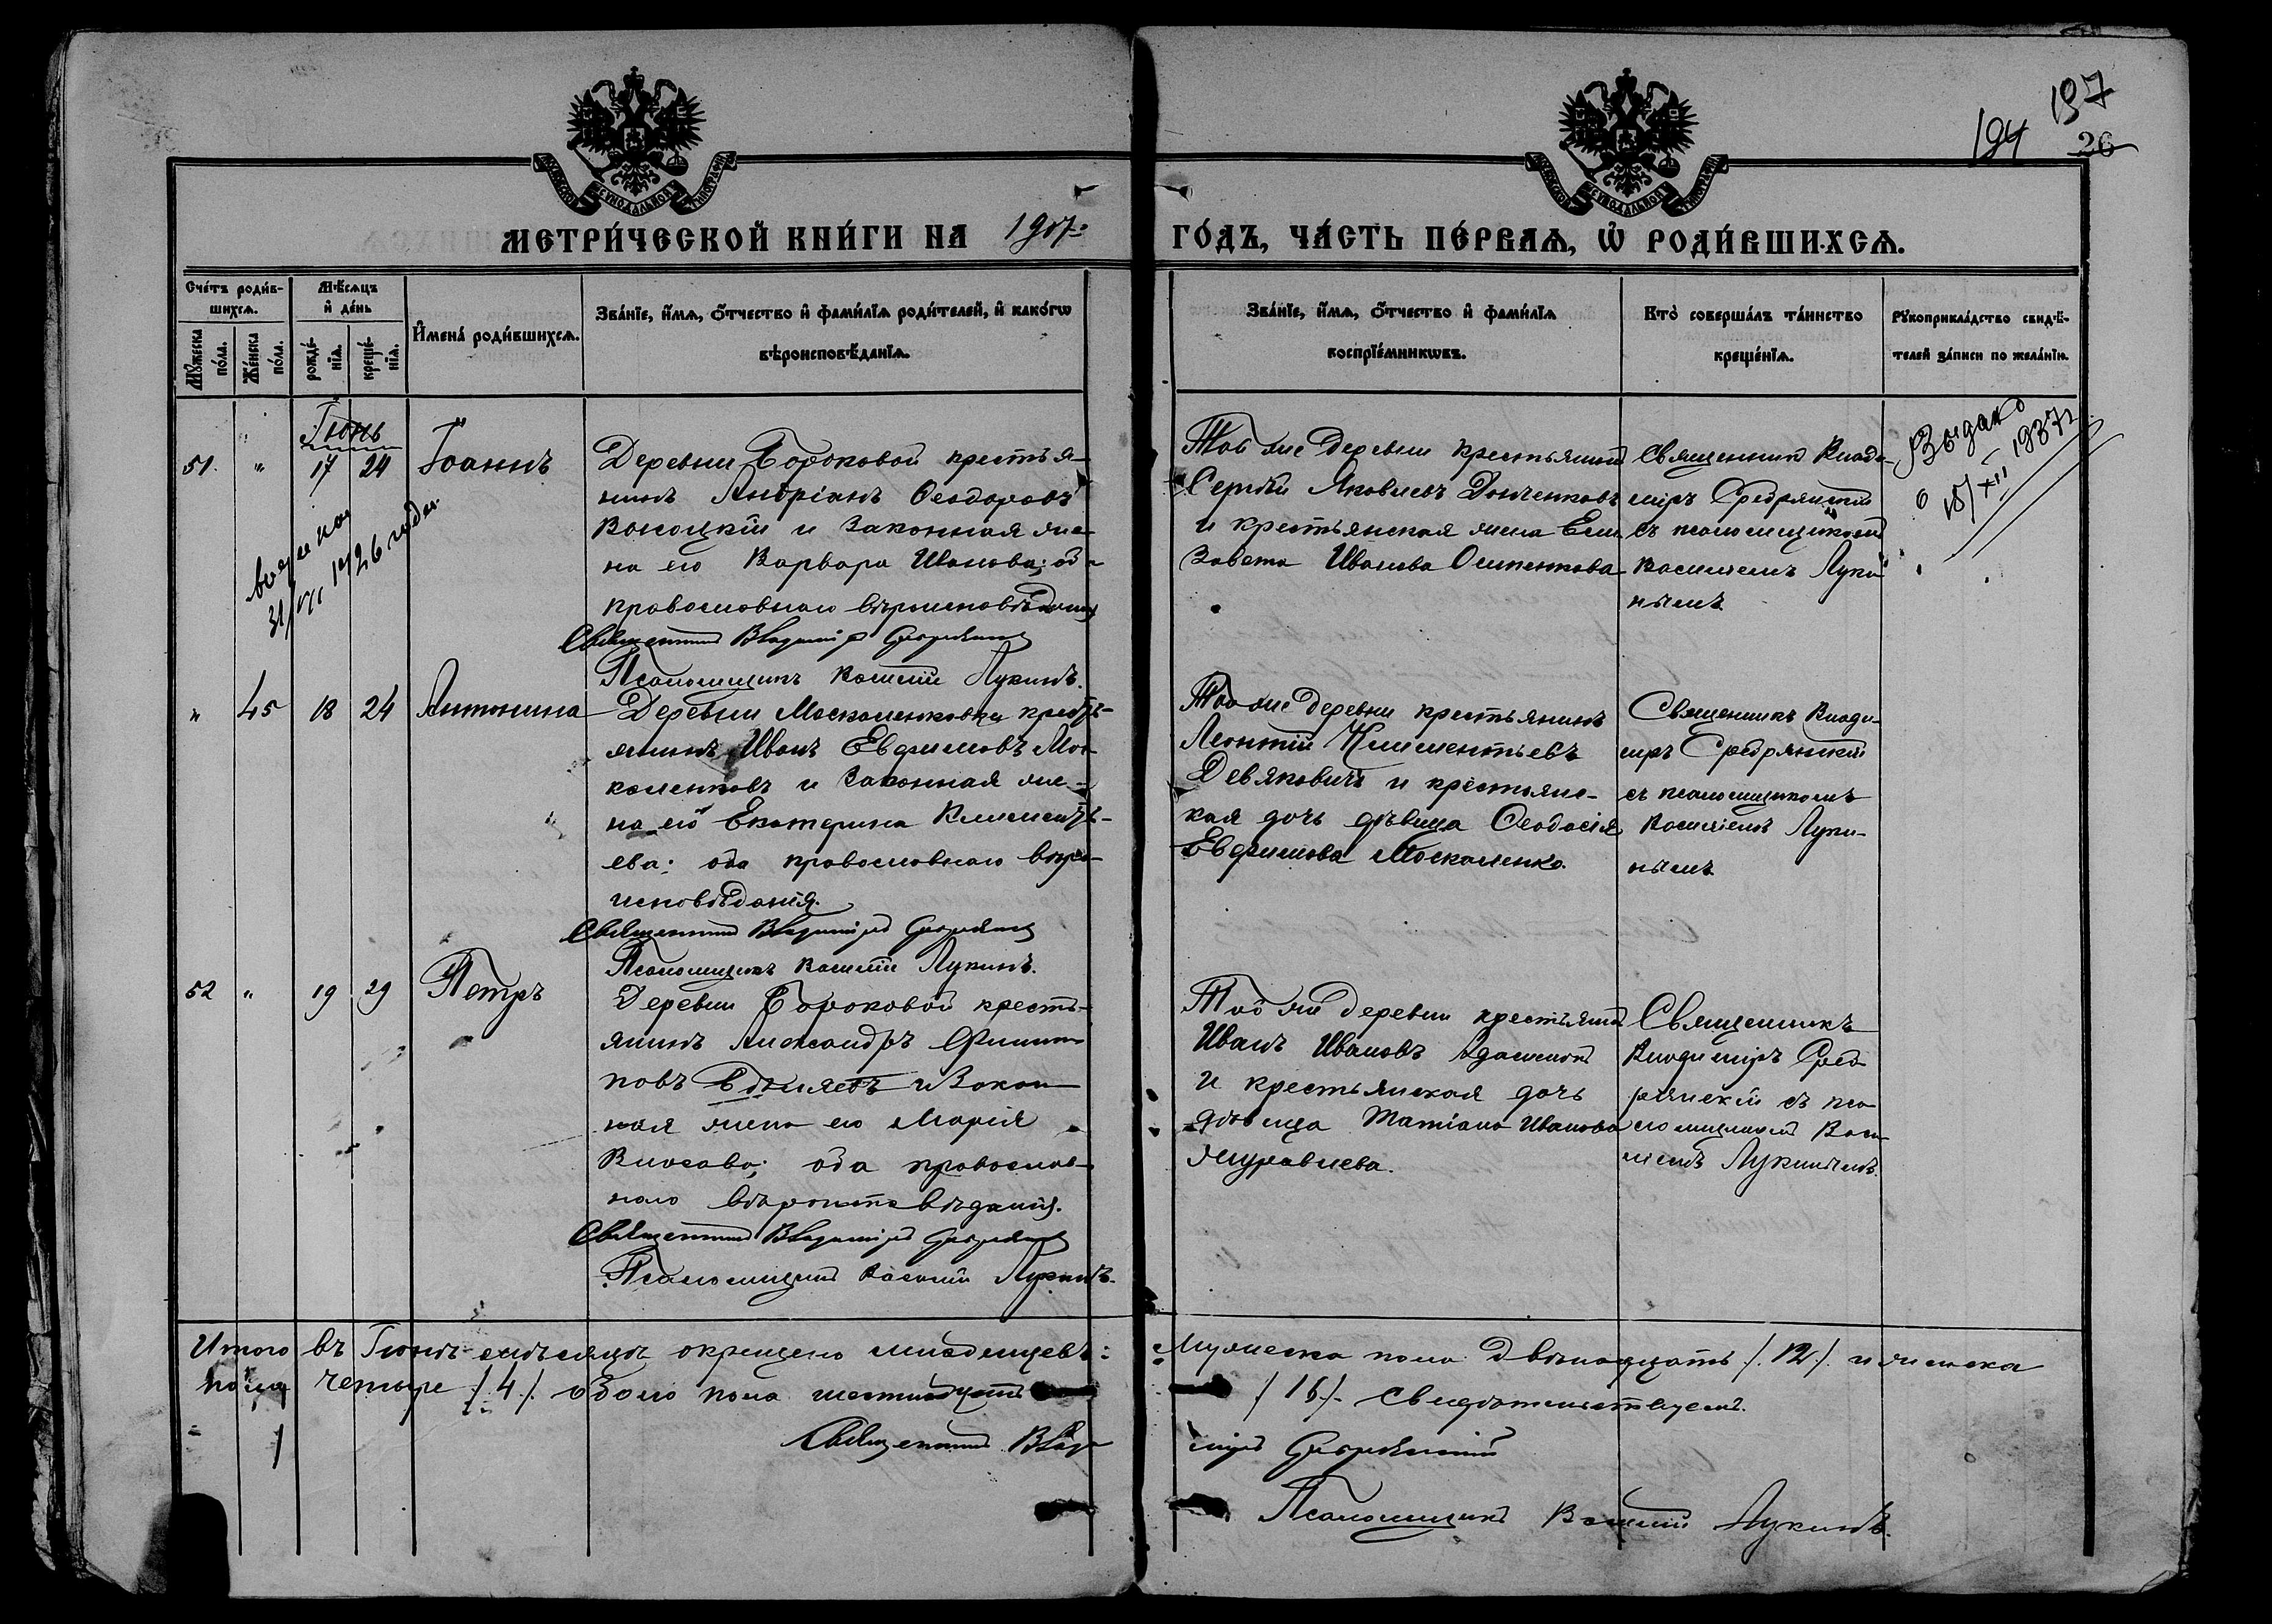 197
194
26
МЕТРИ́ЧЕСКОЙ КНИ́ГИ НА 1907. ГО́ДЪ, ЧА́СТЬ ПЕ́РВАѦ, Ѡ҆ РОДИ́ВШИХСѦ.
Сче́тъ роди́в-
шихсѧ.
Мꙋ́жеска по́ла.
Же́нска по́ла.
Мѣ́сѧцъ и҆ де́нь
рожде́-нїѧ.
креще́-нїѧ.
И҆мена̀ роди́вшихсѧ.
Зва́нїе, и҆́мѧ, ѻ҆́тчество и҆ фами́лїѧ роди́телей, и҆ како́гѡ
вѣроисповѣ́данїѧ.
Зва́нїе, и҆́мѧ, ѻ҆́тчество и҆ фами́лїѧ
воспрїе́мникѡвъ.
Кто̀ соверша́лъ та́инство
креще́нїѧ.
Рꙋкоприкла́дство свидѣ́-
телей за́писи по жела́нїю.
Іюнь
51. " 17 24 Іоаннъ
Деревни Бороковой крестья-
нинъ Андріанъ Ѳеодоровъ
Волоцкій и законная же-
на его Варвара Иванова; оба
православнаго вѣроисповѣданія
Священникъ Владиміръ Сребрянскій
Псаломщикъ Василій Лукинъ.
Той же деревни крестьянинъ
Сергѣй Яковлевъ Донченковъ
и крестьянская жена Ели
завета Иванова Осипенкова
Священникъ Влади-
міръ Сребрянскій
съ псаломщикомъ
Василіемъ Луки-
нымъ
Выдано
18/XII 1937 г
31/VII 1926 года
" 45 18 24 Антонина
Деревни Москаленковки кресть-
янинъ Иванъ Евфимовъ Мос-
каленковъ и законная же-
на его Екатерина Климентъ-
ева; оба православнаго вѣро-
исповѣданія.
Священникъ Владиміръ Сребрянскій
Псаломщикъ Василій Лукинъ.
Той же деревни крестьянинъ
Леонтій Климентьевъ
Девяковичъ и крестьянс-
кая дочь дѣвица Ѳеодосія
Евфимова Москаленко.
Священникъ Влади-
міръ Сребрянскій
съ псаломщикомъ
Василіемъ Луки-
нымъ
52 " 19 29 Петръ
Деревни Бороковой кресть-
янинъ Александръ Филип-
повъ и закон-
ная жена его Марія
Власова; оба православ-
наго вѣроисповѣданія.
Священникъ Владиміръ Сребрянскій
Псаломщикъ Василій Лукинъ.
Той же деревни крестьянинъ
Иванъ Ивановъ
и крестьянская дочь
дѣвица Татіана Иванова
Журавлева.
Священникъ
Владиміръ Среб-
рянскій съ пса-
ломщикомъ Васи-
ліемъ Лукинымъ.
Итого въ Іюнѣ мѣсяцѣ окрещено младенцевъ: Мужеска пола двѣнадцать /.12./ и женска
пола четыре /.4./. обоего пола шестнадцать /16/. Свидѣтельствуемъ.
Священникъ Владиміръ Сребрянскій
Псаломщикъ Василій Лукинъ.